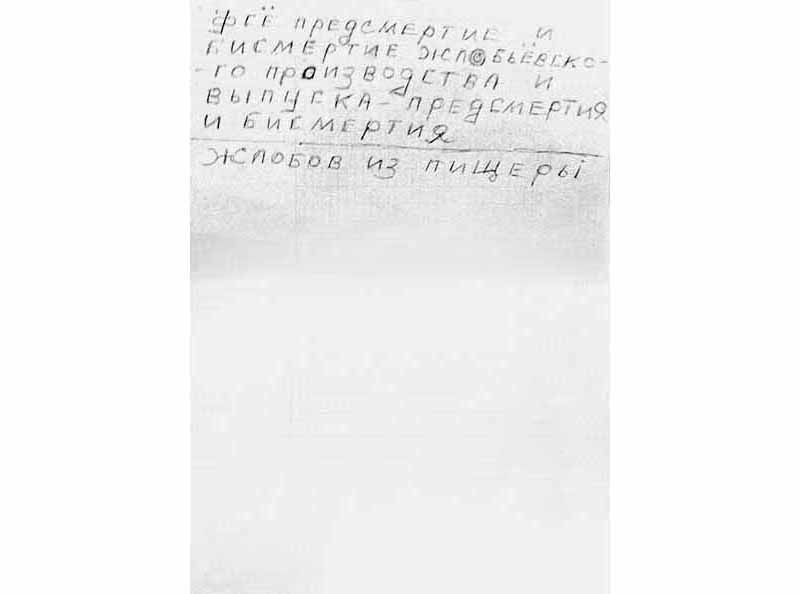 ФГЁ ПРЕДСМЕРТИЕ И
БИСМЕРТИЕ ЖЛОБЬЁВСКО-
ГО ПРОИЗВОДСТВА И
ВЫПУСКА - ПРЕДСМЕРТИЯ
И БИСМЕРТИЯ
ЖЛОБОВ ИЗ ПИЩЕРЫ